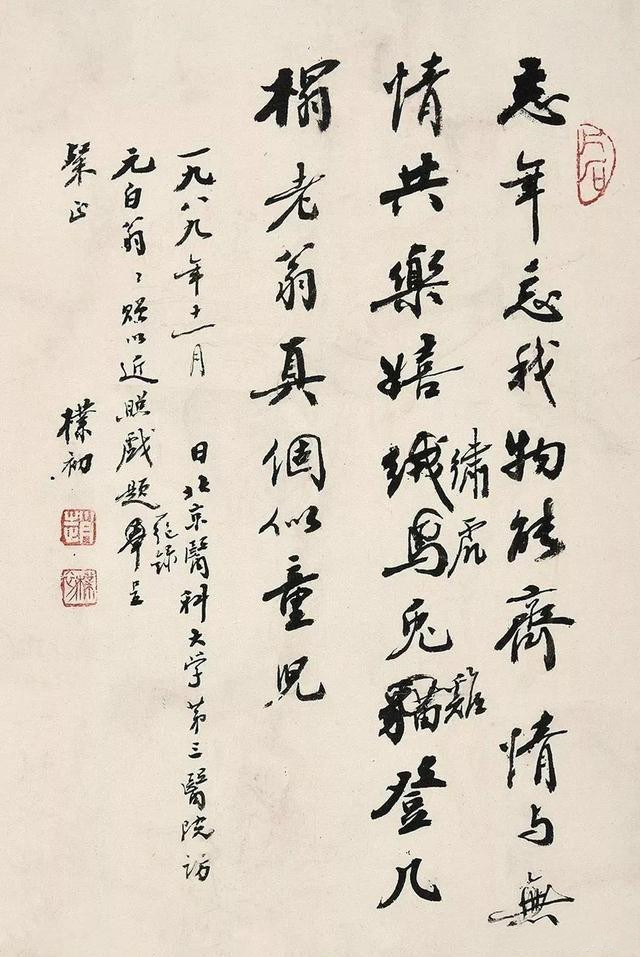 忘年忘我物能齊情与無
情共樂嬉绒馬兎貓登几
繡虎
雞
榻老翁真個似童児
一九八九年十一月 日北京醫科大学第三醫院访
元白翁〻贻以近照戲题奉呈
粲正
樸初